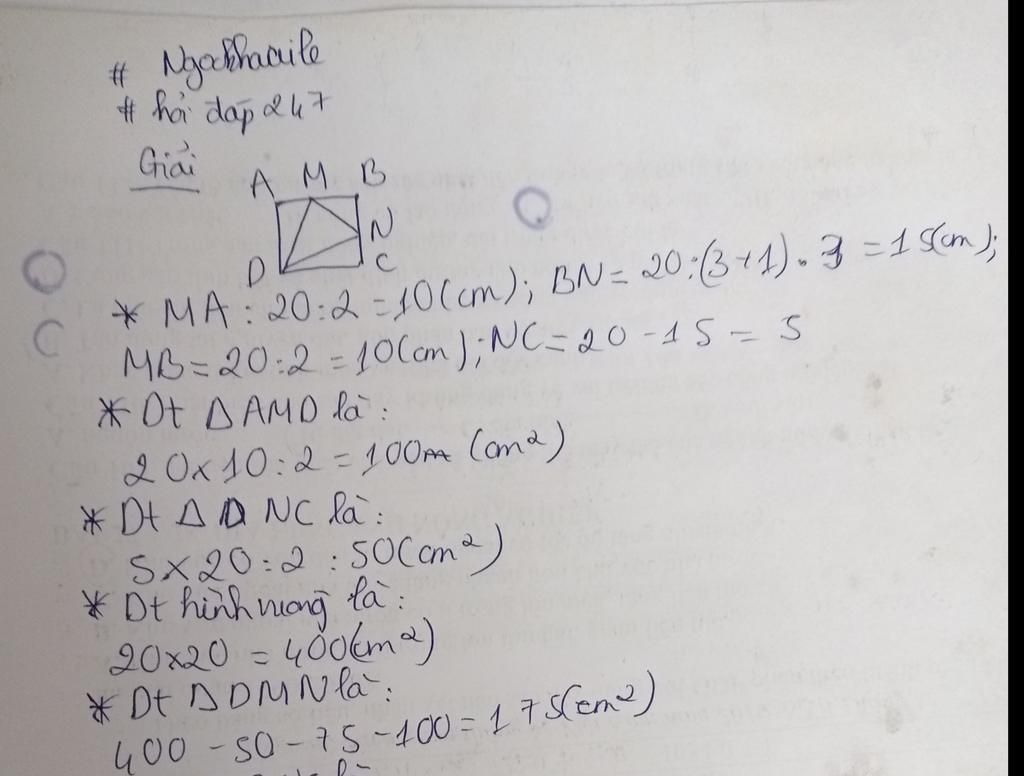 # Ngockhacuile
# hỏi đáp 247
Giải
A M B
N
D C
* MA : 20 : 2 = 10 (cm) ; BN = 20 : (3 + 1) . 3 = 15(cm);
MB = 20 : 2 = 10 (cm) ; NC = 20 - 15 = 5
* Dt Δ AMD là :
20 x 10 : 2 = 100 (cm²)
* Dt Δ D NC là :
5 x 20 : 2 : 50 (cm²)
* Dt hình vuong là :
20x20 = 400(cm²)
* Dt Δ DMN là :
400 - 50 - 75 - 100 = 175(cm²)